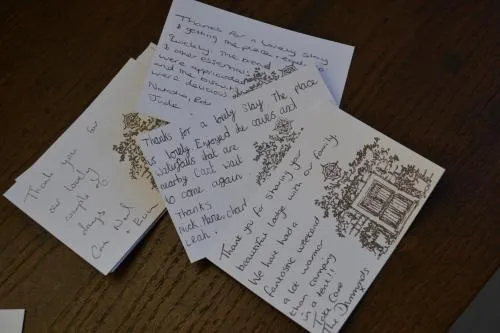 Thanks for a lovely stay
& getting the place ready so
quickly. The bread
& other essentials
were appriciated
and the biscuits
were delicious
Natasha, Rob
Jude
Thank you for
our lovely
couple of
days
Thanks for a lovely stay. The place
is lovely. Enjoyed the caves and
waterfalls that are
nearby. Cant wait
to come again.
Thanks
Nick, Marie,
Leah.
Thank you for sharing your
beautiful lodge with our family
We have had a
fantastic weekend
a lot warmer
than camping
in a tent!!
Take Care
The Dummonds